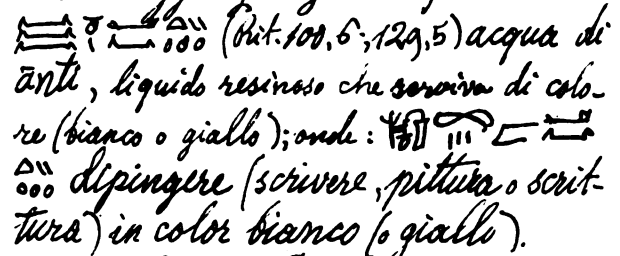 (Rit. 100, 6; 129, 5) acqua di
ānti, liquido resinoso che serviva di colo-
re (bianco o giallo); onde:
dipingere (scrivere, pittura o scrit-
tura) in color bianco (o giallo).